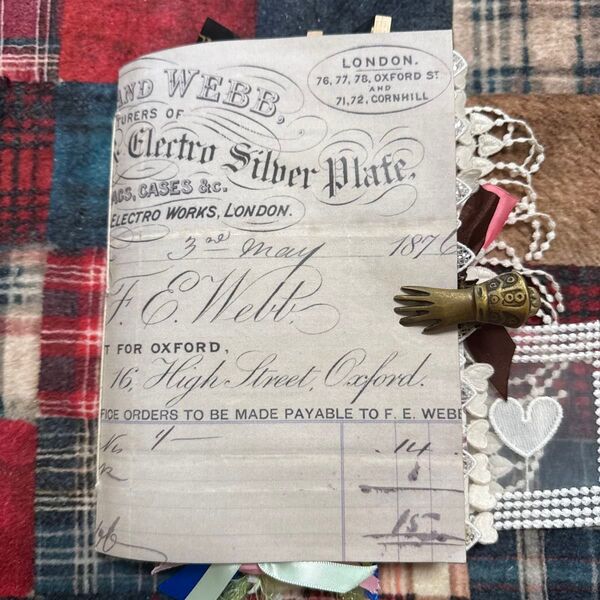 AND WEBB,
TURERS OF
Electro Silver Plate,
AGS, CASES &c.
ELECTRO WORKS, LONDON.
LONDON.
76, 77, 78, OXFORD ST
AND
71, 72, CORNHILL
3rd May 1876
F. E. Webb.
T FOR OXFORD,
16, High Street, Oxford.
FICE ORDERS TO BE MADE PAYABLE TO F. E. WEBB
14
15